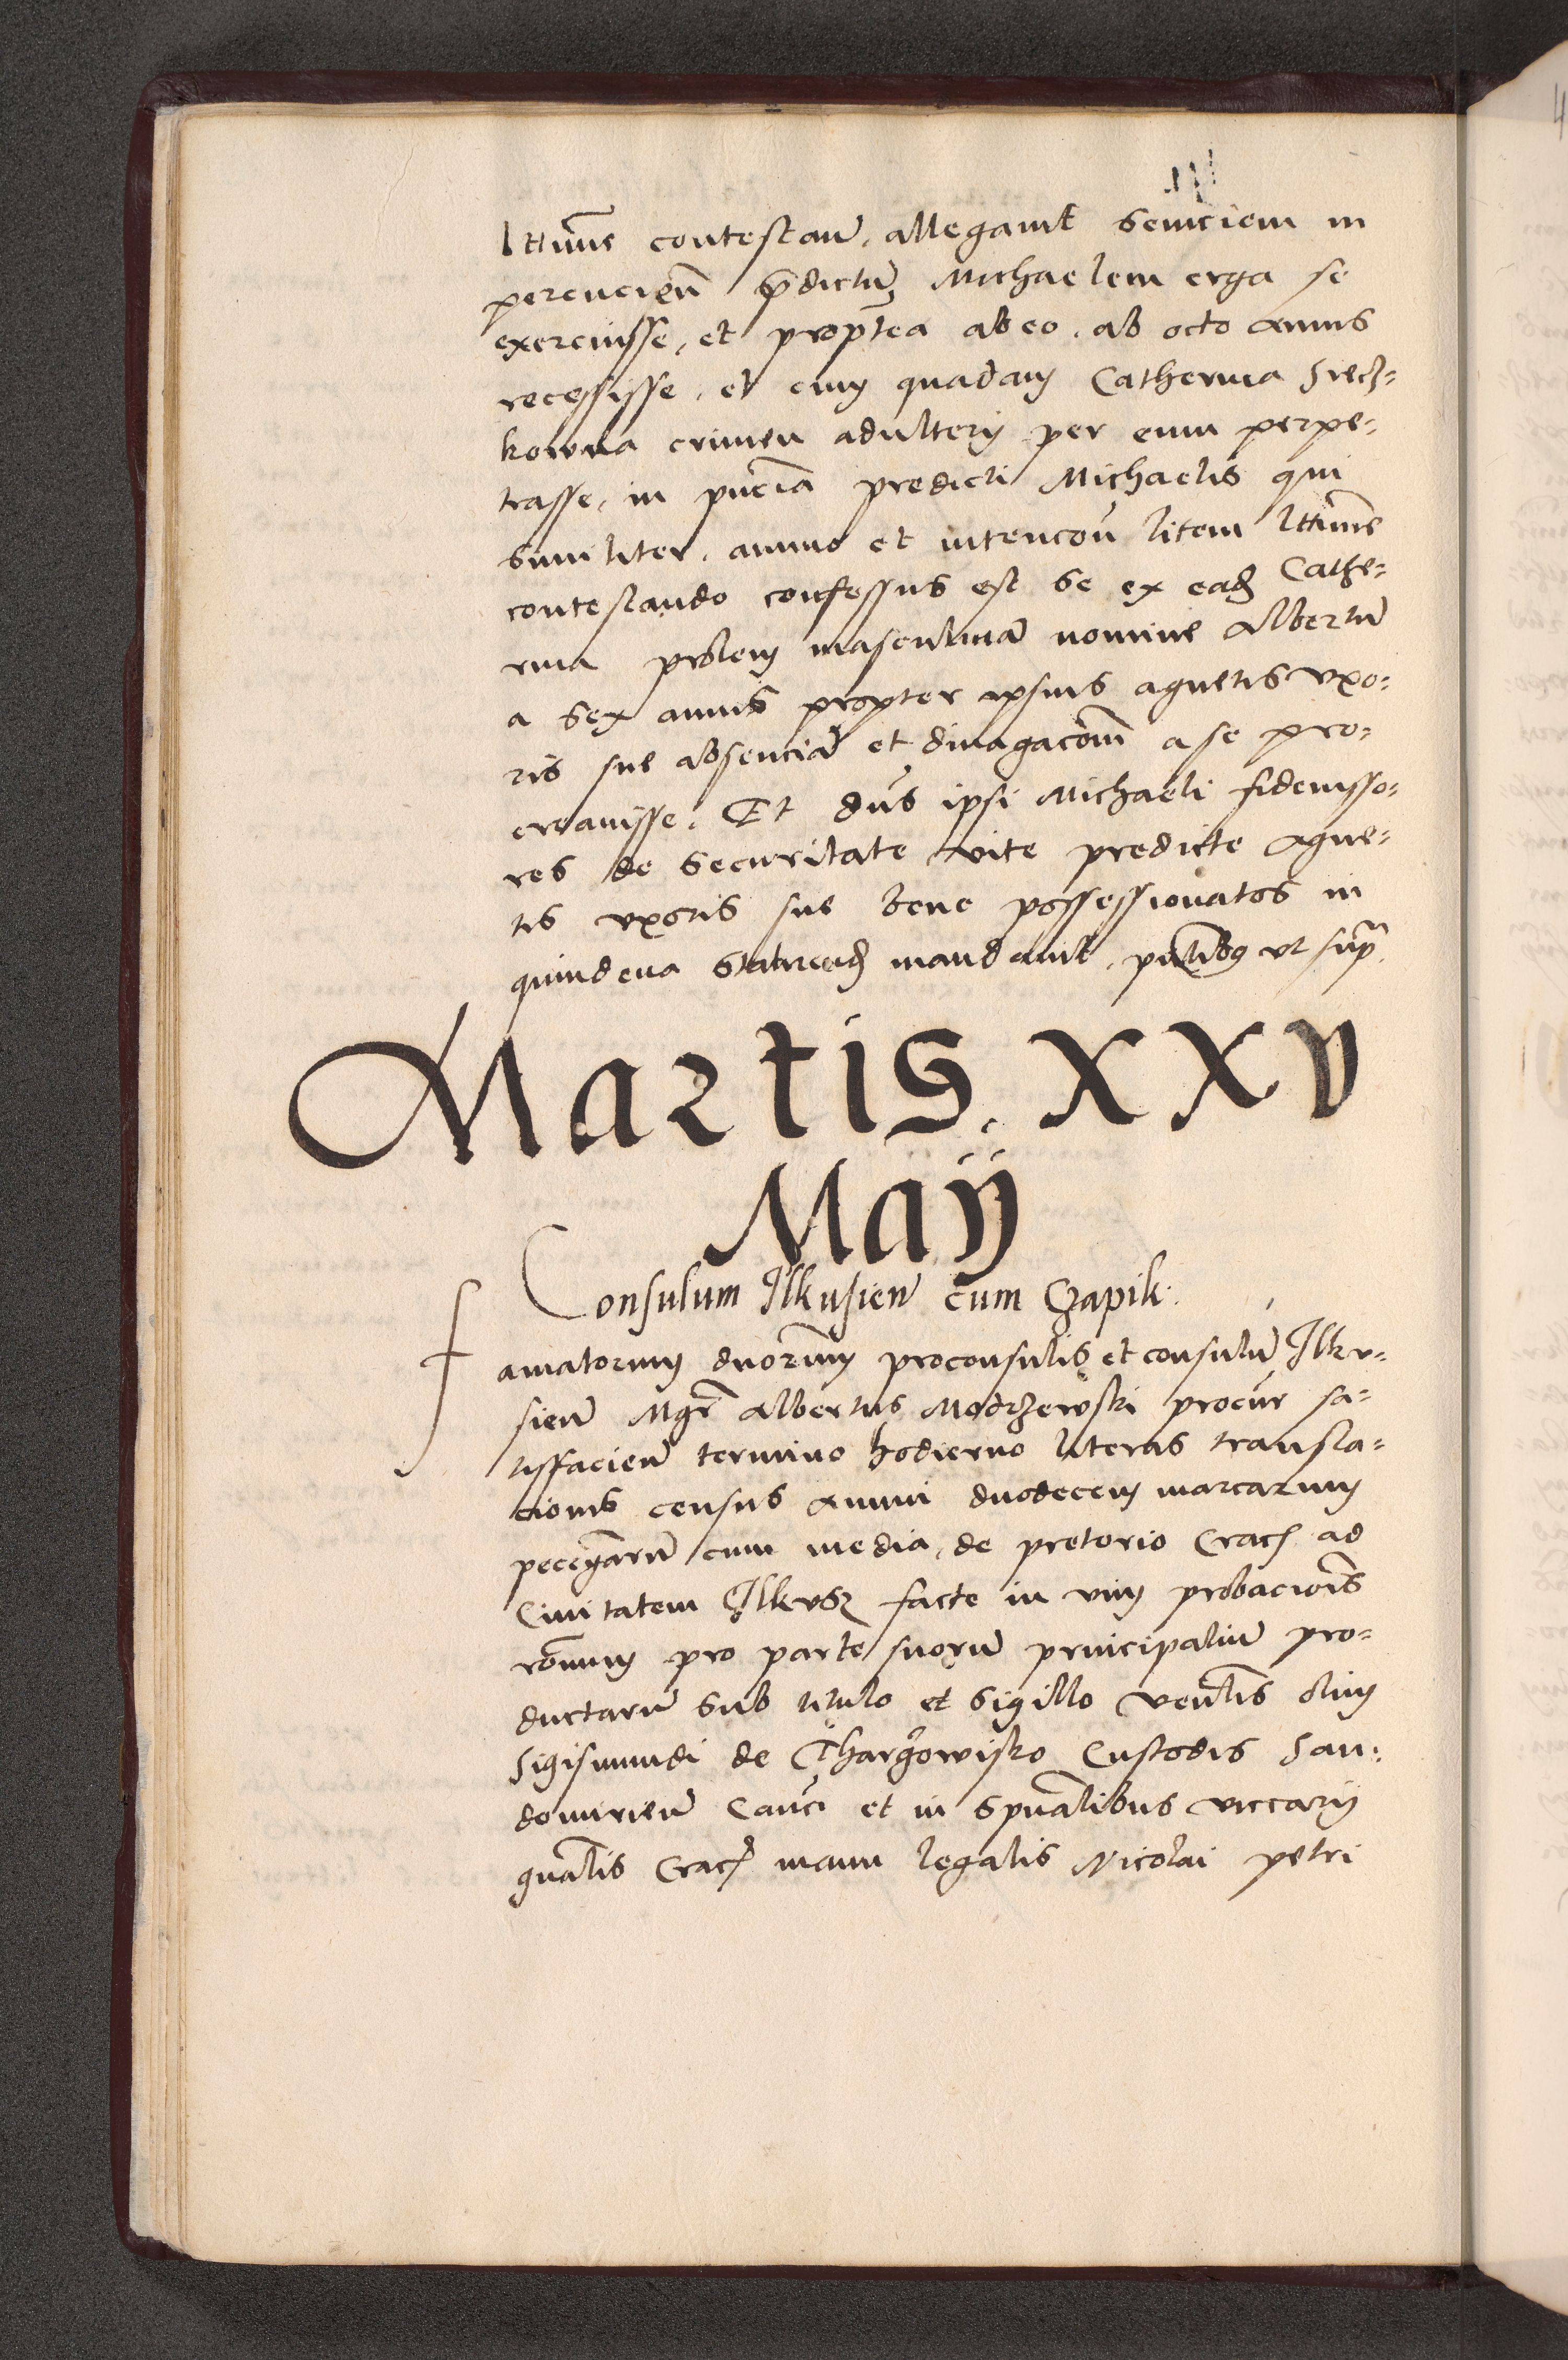 lttime contestan̄. allegavit seviciem in
percucien̄ p̄dictum Michaelem erga se
exercuisse, et propt̄ea ab eo. ab octo annis
recessisse. et cum quadam Catherina Srecz=
kowna crimen adulterij per eum perpe=
trasse, in pn̄cia predicti Michaelis qui
similiter. animo et intencōn litem lttime
contestando confessus est se ex ead Cathe=
rina prolem masculinā nomine Albertū
a sex annis propter ipsius agnetis vxo=
ris sue absenciā et divagacōnē a se pro=
creavisse. Et dn̄s ipsi Michaeli fideiusso=
res de securitate vite predicte Agne=
tis vxoris sue bene possessionatos in
quindena statuend mandavit. pn̄tibg ut sup̄
Martis. XXV
Maÿ
Consulum Ilkusien̄ cum Czapik.
famatorum duorum proconsulis et consulū Ilku=
sien̄ Mgr̄ Albertus Modrzewski procur̄ sa=
tisfacien̄ termino hodierno literas transla=
cionis census annui duodecem marcarum
pecuniarū cum media, de pretorio Crac ad
Civitatem Ilkusz facte in vim probacionis
pro parte suorū principaliū pro=
ductarū sub titulo et sigillo ven̄lis olim
Sigismundi de Thargowisko Custodis San=
domirien̄ Canc̄i et in spūalibus viccarij
gn̄alis Crac manu legalis Nicolai petri